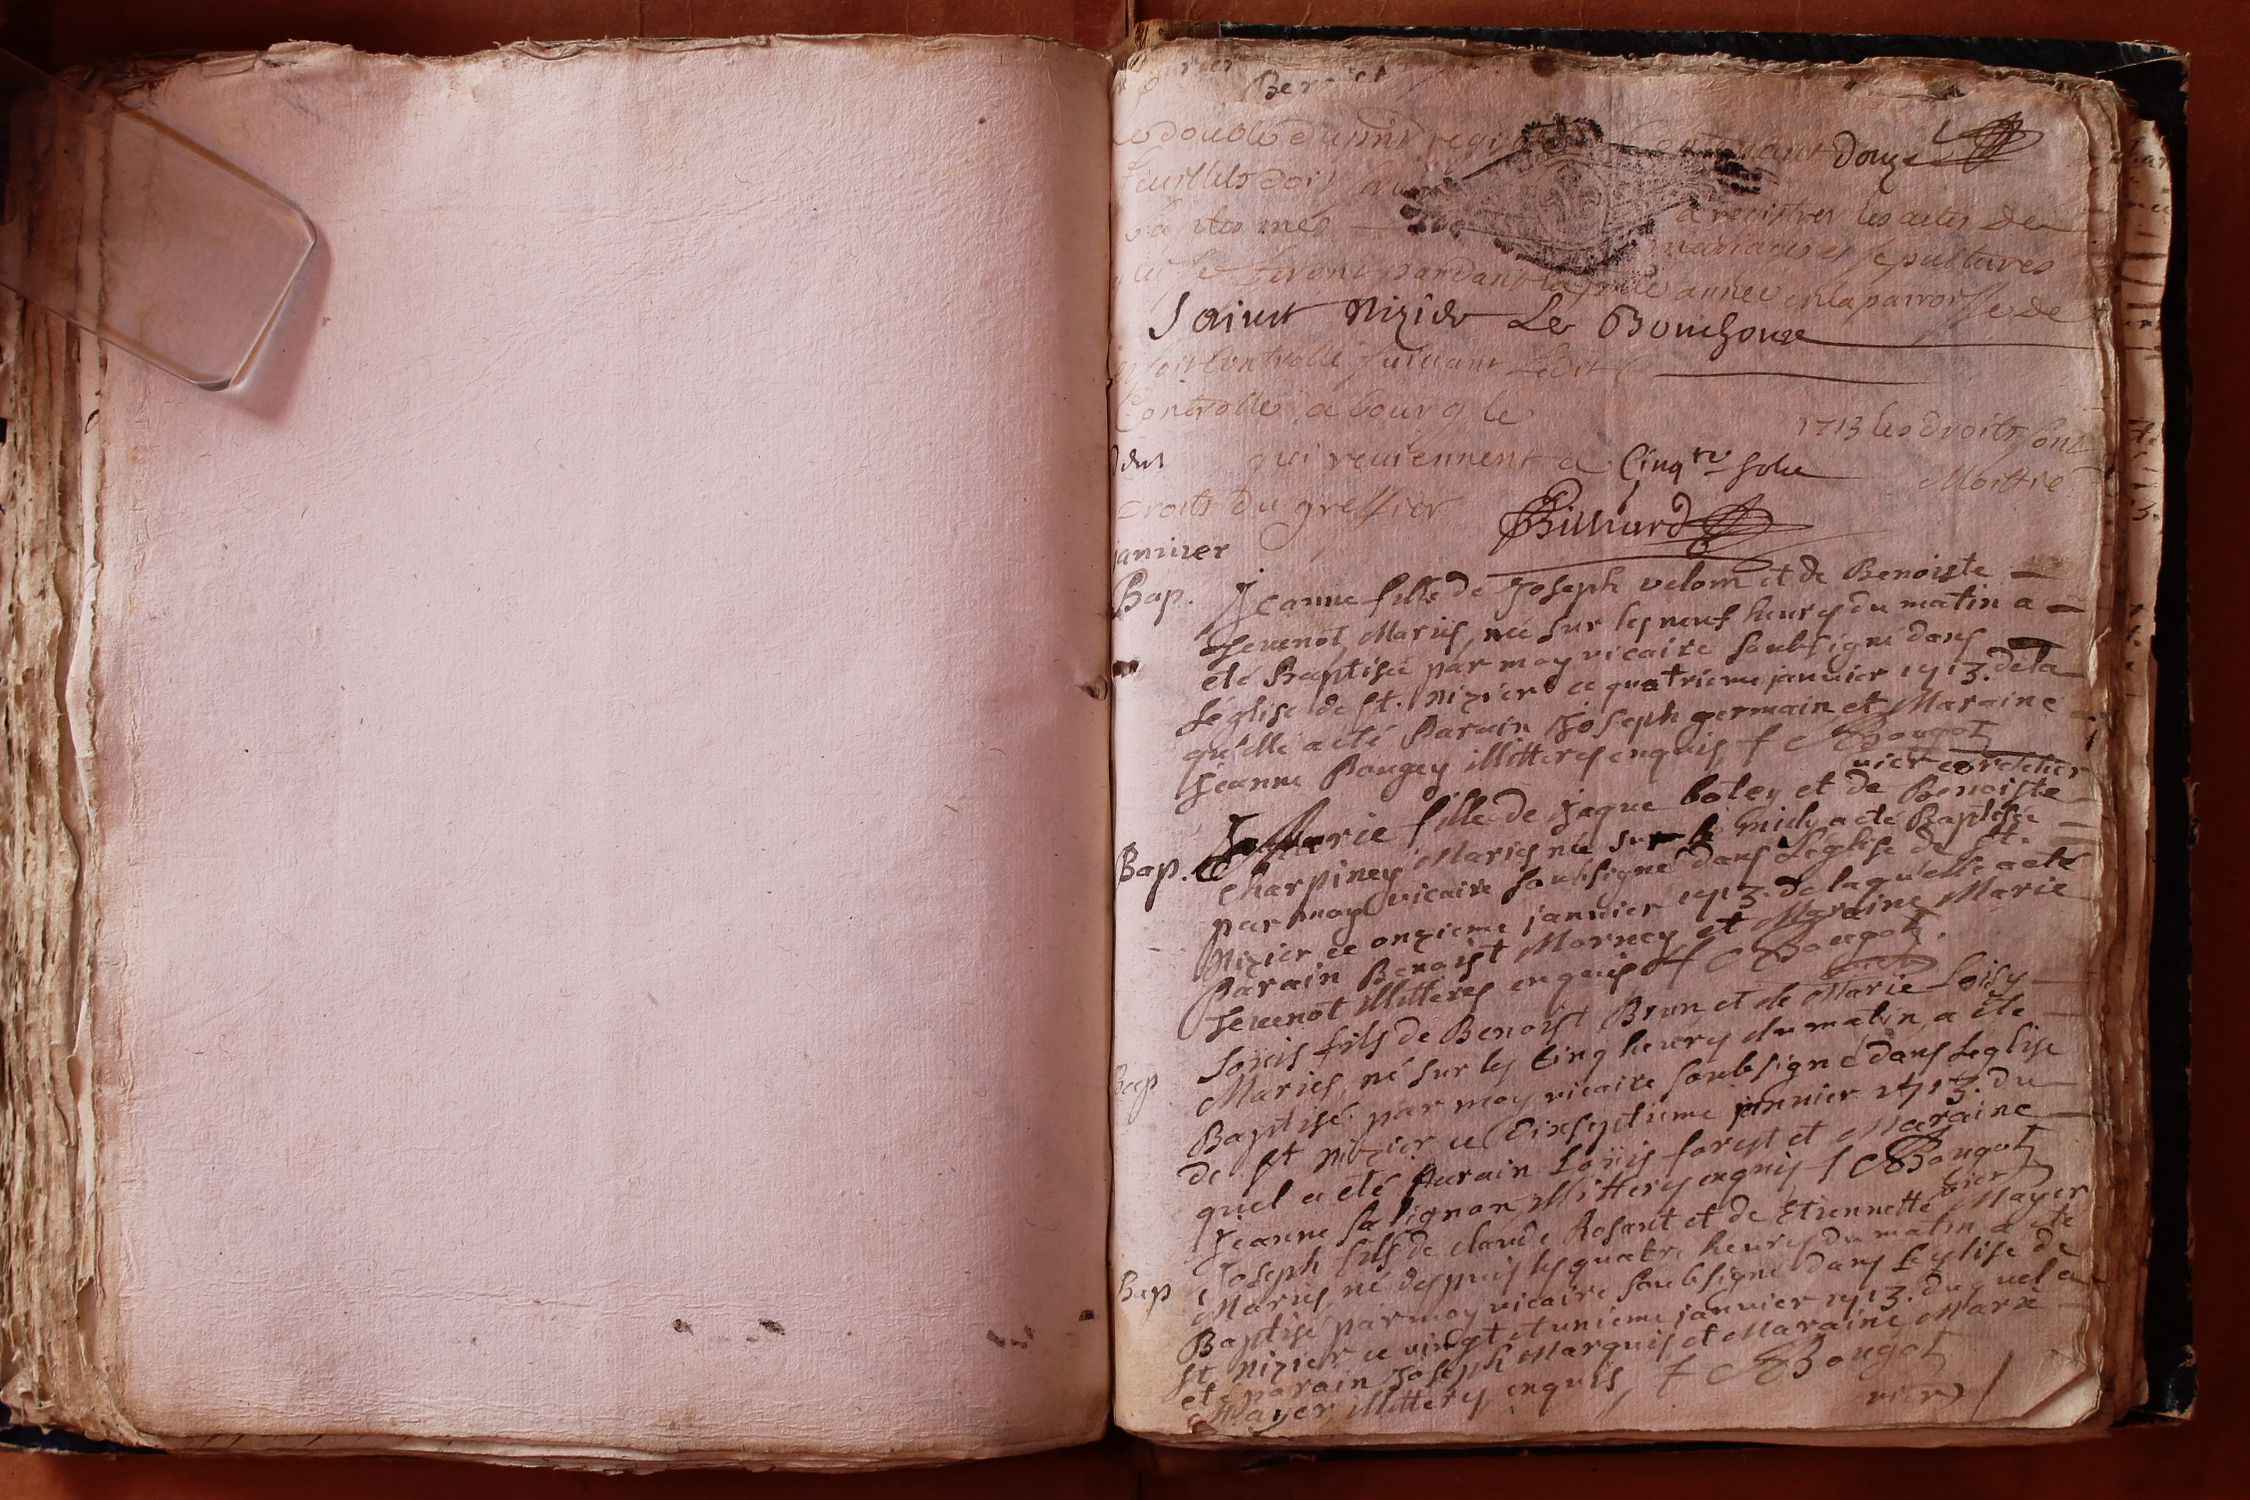 le double du pnt regi contenant Douze
feuillets doit
a registrer les actes de
baptesmes mariages et sepultures
qui se feront pendant la pnte année en la parroisse de
Saint Nizier Le Bouchoux
soit controllé suivant Ledit
Controllé a bourg le 1713 les droits sont
qui reviennent a Cinq sols Moitié
Droits du greffier
Billiard
janvier
Bap. Jeanne fille de Joseph velom et de Benoiste
Jevenot Mariés, née sur les neuf heures du matin a
eté Baptisée par moy vicaire soubsigné dans
Léglise de St. Nizier ce quatrieme janvier 1713. de la
qu'elle a eté Parain Joseph germain et Maraine
Jeanne Bongey illitterés enquis f Bougot
vier cordelier
Bap. Marie fille de Jaque botey et de Benoiste
Charpiney Mariés née sur le midy a eté Baptisée
par moy vicaire soubsigné dans Léglise de St.
Nizier ce onzieme janvier 1713. de laqu'elle a eté
Parain Benoist Morney et Maraine Marie
Jevenot illitterés enquis f Bougot
vier
Bap Loüis fils de Benoist Brun et de Marie Loisy
Mariés, né sur les Cinq heures du matin, a eté
Baptisé par moy vicaire soubsigné dans Leglise
de St Nizier ce dixseptieme janvier 1713. du
quel a eté Parain Loüis forest et Maraine
Jeanne Salignon illitterés enquis f Bougot
vier
Bap Joseph fils de claude Rosant et de Etiennette Mayer
Mariés, né depuis les quatre heures du matin a eté
Baptisé par moy vicaire soubsigné dans Leglise de
St Nizier ce vingt et unieme janvier 1713. du quel a
eté parain Joseph Marquis et Maraine Marie
Mayer illitterés enquis f Bougot
vier